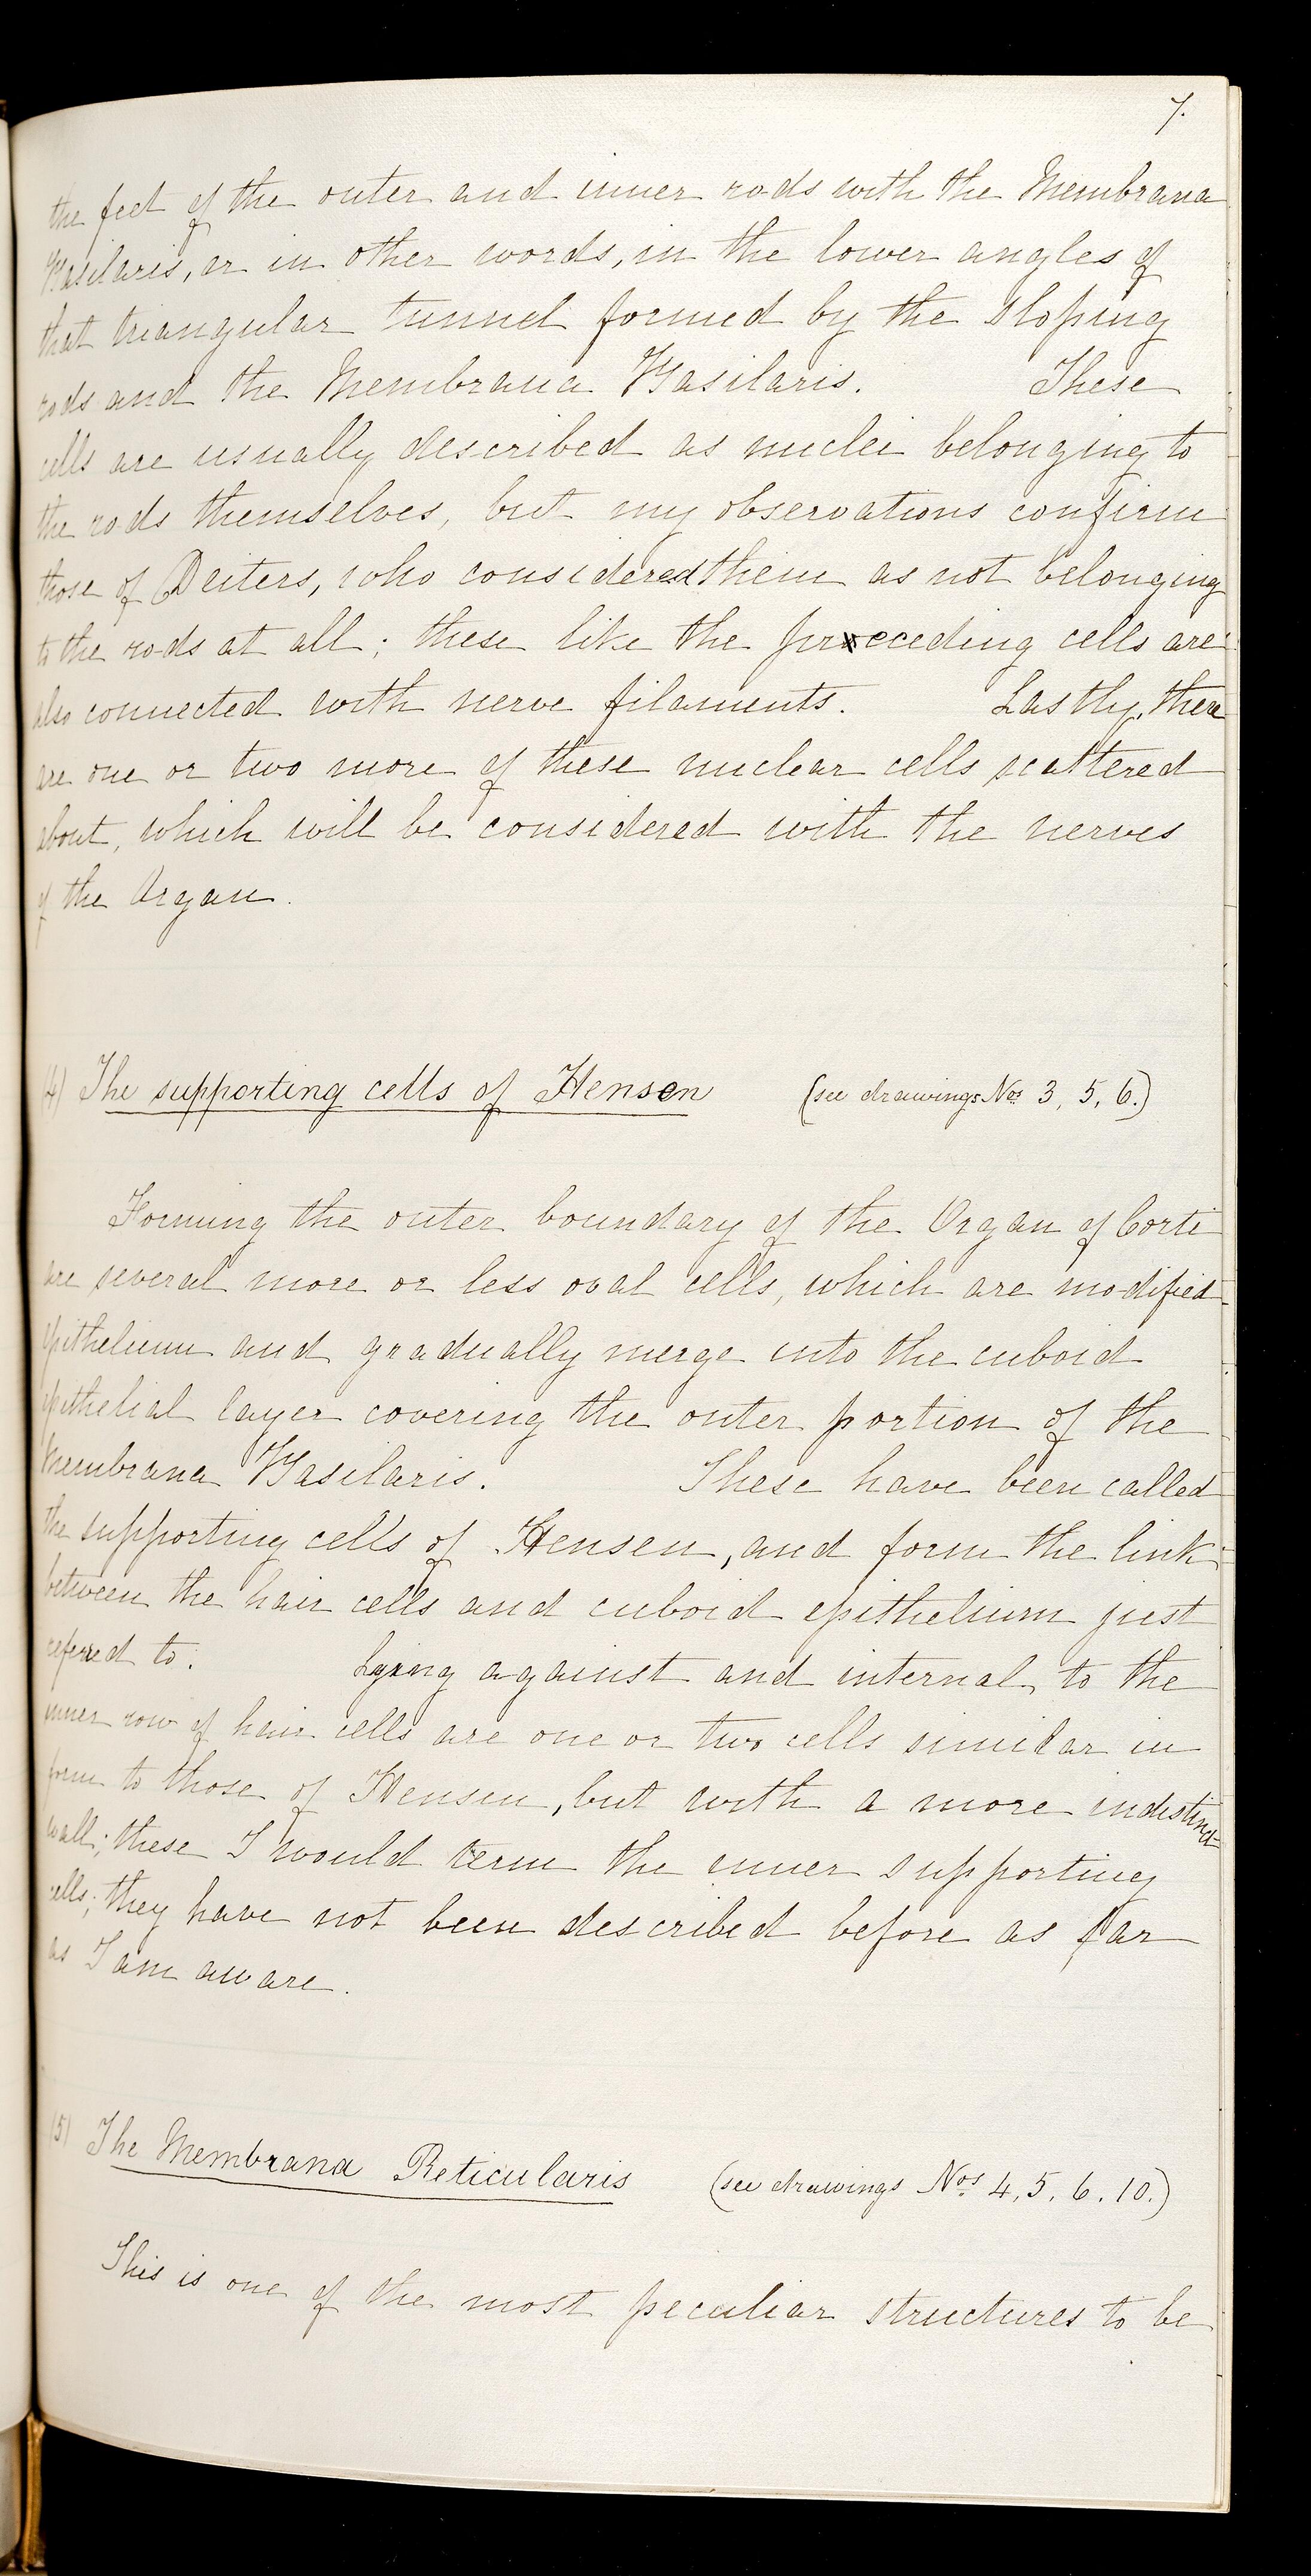 7.
the feet of the outer and inner rods with the Membrana
Basilaris, or in other words, in the lower angles of
that triangular tunnel formed by the sloping
rods and the Membrana Basilaris. These
cells are usually described as nuclei belonging to
the rods themselves, but my observations confirm
those of Deiters, who considered them as not belonging
to the rods at all; these like the preceding cells are
also connected with nerve filaments. Lastly, there
are one or two more of these nuclear cells scattered
about, which will be considered with the nerves
of the Organ.
(4) The supporting cells of Hensen (see drawings Nos 3, 5, 6.)
Forming the outer boundary of the Organ of Corti
are several more or less oval cells, which are modified
epithelium and gradually merge into the cuboid
epithelial layer covering the outer portion of the
Membrana Basilaris. These have been called
the supporting cells of Hensen, and form the link
between the hair cells and cuboid epithelium just
referred to. Lying against and internal to the
inner row of hair cells are one or two cells similar in
form to those of Hensen, but with a more indistinct
wall; these I would term the inner supporting
cells; they have not been described before as far
as I am aware.
(5) The Membrana Reticularis (see drawings Nos 4, 5, 6, 10.)
This is one of the most peculiar structures to be